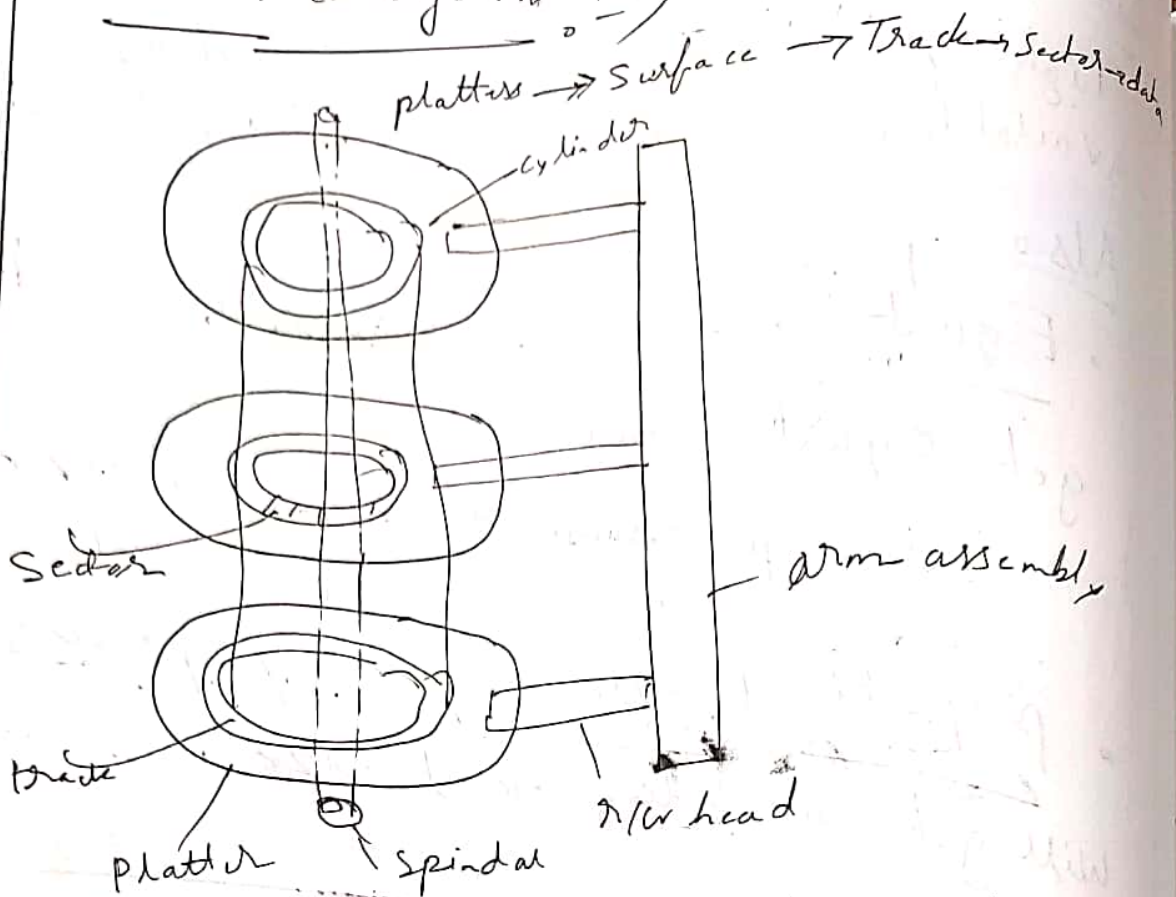 platters → Surface → Track → Sector → data
cylinder
Sector
arm assembly
track
r/w head
platter
spindal